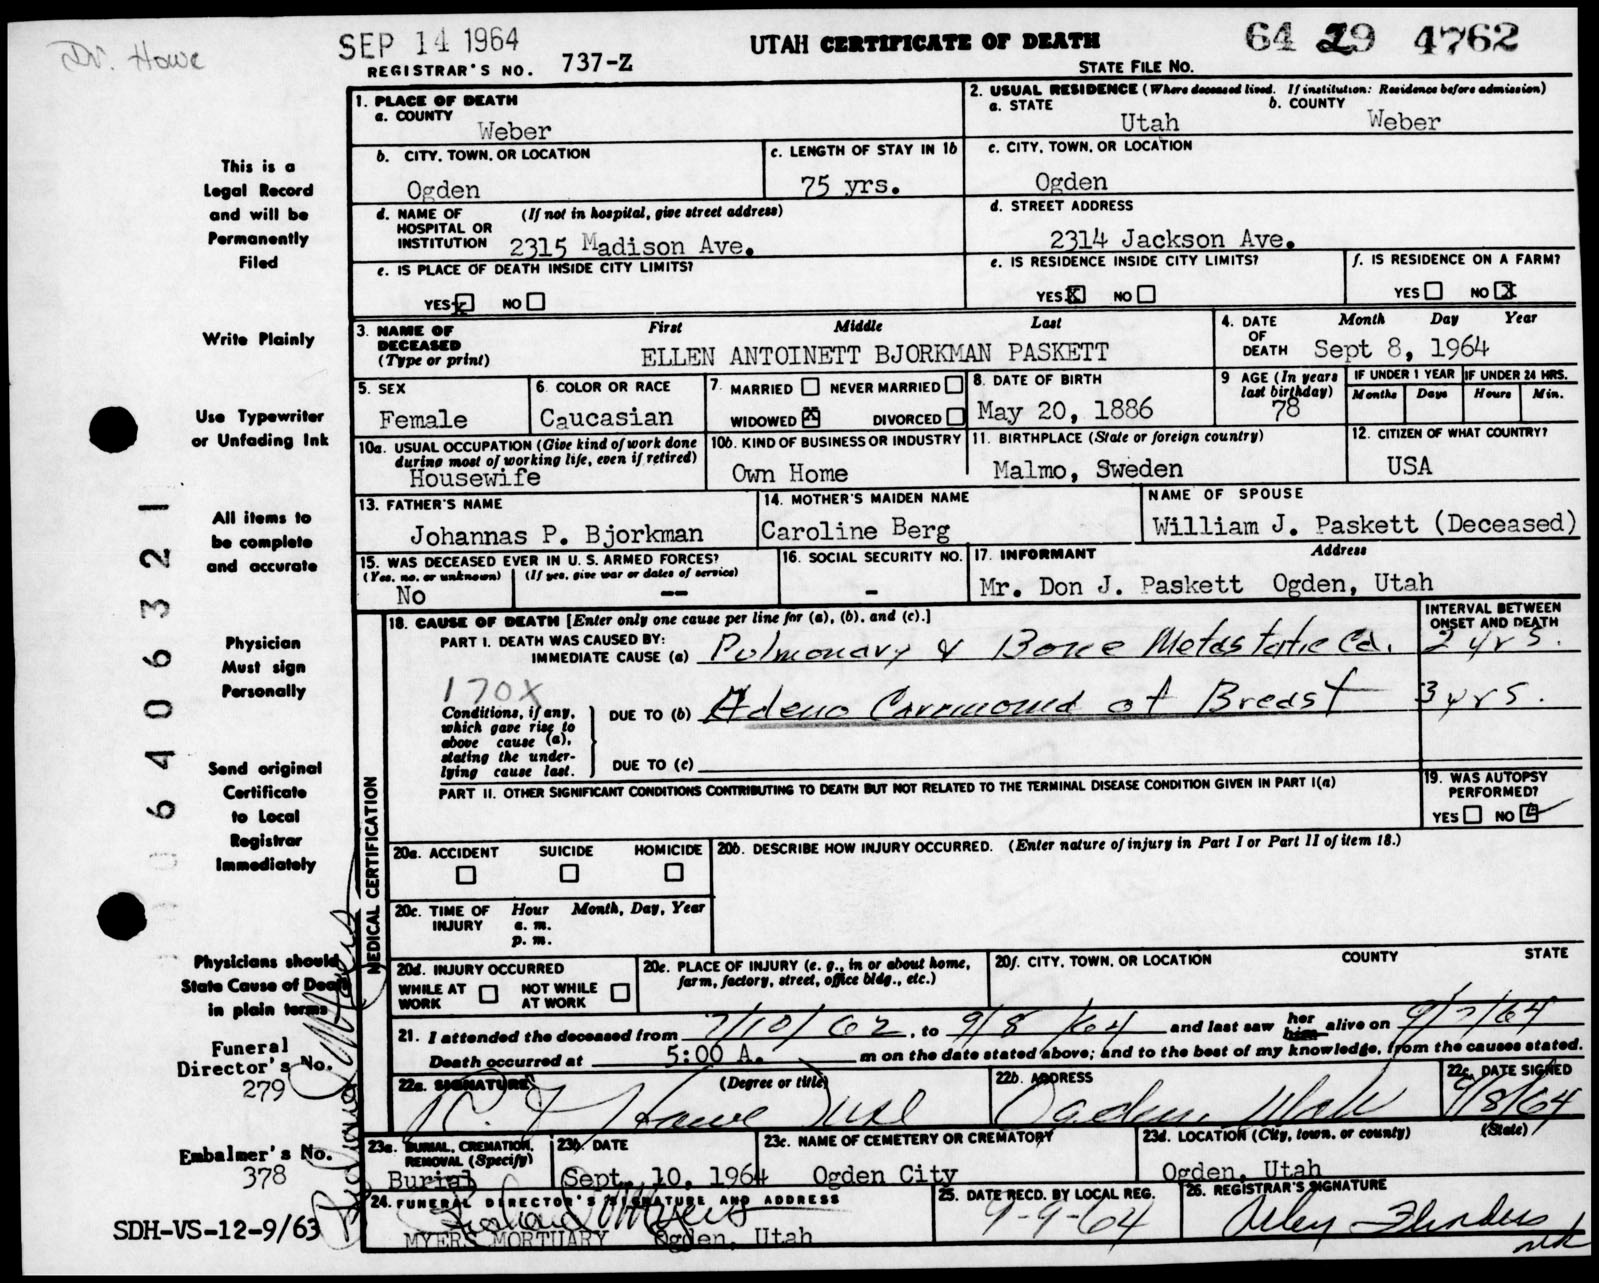 Dr. Howe
SEP 14 1964
REGISTRAR'S NO. 737-Z
UTAH CERTIFICATE OF DEATH
64 29 4762
STATE FILE NO.
This is a
Legal Record
and will be
Permanently
Filed
Write Plainly
Use Typewriter
or Unfading Ink
All items to
be complete
and accurate
Physician
Must sign
Personally
Send original
Certificate
to Local
Registrar
Immediately
Physicians should
State Cause of Death
in plain terms
Funeral
Director's No.
279
Embalmer's No.
378
SDH-VS-12-9/63
06406321
1. PLACE OF DEATH
a. COUNTY
Weber
2. USUAL RESIDENCE (Where deceased lived. If institution: Residence before admission)
a. STATE b. COUNTY
Utah Weber
b. CITY, TOWN, OR LOCATION
Ogden
c. LENGTH OF STAY IN 1b
75 yrs.
c. CITY, TOWN, OR LOCATION
Ogden
d. NAME OF (If not in hospital, give street address)
HOSPITAL OR
INSTITUTION 2315 Madison Ave.
d. STREET ADDRESS
2314 Jackson Ave.
e. IS PLACE OF DEATH INSIDE CITY LIMITS?
YES x NO
e. IS RESIDENCE INSIDE CITY LIMITS?
YES X NO
f. IS RESIDENCE ON A FARM?
YES NO X
3. NAME OF
DECEASED
(Type or print)
First Middle Last
ELLEN ANTOINETT BJORKMAN PASKETT
4. DATE
OF
DEATH
Month Day Year
Sept 8, 1964
5. SEX
Female
6. COLOR OR RACE
Caucasian
7. MARRIED NEVER MARRIED
WIDOWED X DIVORCED
8. DATE OF BIRTH
May 20, 1886
9 AGE (In years
last birthday)
78
IF UNDER 1 YEAR
Months Days
IF UNDER 24 HRS.
Hours Min.
10a. USUAL OCCUPATION (Give kind of work done
during most of working life, even if retired)
Housewife
10b. KIND OF BUSINESS OR INDUSTRY
Own Home
11. BIRTHPLACE (State or foreign country)
Malmo, Sweden
12. CITIZEN OF WHAT COUNTRY?
USA
13. FATHER'S NAME
Johannas P. Bjorkman
14. MOTHER'S MAIDEN NAME
Caroline Berg
NAME OF SPOUSE
William J. Paskett (Deceased)
15. WAS DECEASED EVER IN U. S. ARMED FORCES?
(Yes, no, or unknown) (If yes, give war or dates of service)
No --
16. SOCIAL SECURITY NO.
-
17. INFORMANT Address
Mr. Don J. Paskett Ogden, Utah
MEDICAL CERTIFICATION
18. CAUSE OF DEATH [Enter only one cause per line for (a), (b), and (c).]
INTERVAL BETWEEN
ONSET AND DEATH
PART I. DEATH WAS CAUSED BY:
IMMEDIATE CAUSE (a) Pulmonary & Bone Metastatic Ca. 2 yrs.
170X
Conditions, if any,
which gave rise to
above cause (a),
stating the under-
lying cause last.
DUE TO (b) Adeno Carcinoma of Breast 3 yrs.
DUE TO (c)
PART II. OTHER SIGNIFICANT CONDITIONS CONTRIBUTING TO DEATH BUT NOT RELATED TO THE TERMINAL DISEASE CONDITION GIVEN IN PART I(a)
19. WAS AUTOPSY
PERFORMED?
YES NO
20a. ACCIDENT SUICIDE HOMICIDE
20b. DESCRIBE HOW INJURY OCCURRED. (Enter nature of injury in Part I or Part II of item 18.)
20c. TIME OF
INJURY
Hour Month, Day, Year
a. m.
p. m.
20d. INJURY OCCURRED
WHILE AT
WORK
NOT WHILE
AT WORK
20e. PLACE OF INJURY (e. g., in or about home,
farm, factory, street, office bldg., etc.)
20f. CITY, TOWN, OR LOCATION COUNTY STATE
21. I attended the deceased from 7/10/62, to 9/8/64 and last saw her him alive on 9/7/64
Death occurred at 5:00 A. m on the date stated above; and to the best of my knowledge, from the causes stated.
22a. SIGNATURE (Degree or title)
Howe
22b. ADDRESS
Ogden, Utah
22c. DATE SIGNED
9/8/64
23a. BURIAL, CREMATION,
REMOVAL (Specify)
Burial
23b. DATE
Sept. 10, 1964
23c. NAME OF CEMETERY OR CREMATORY
Ogden City
23d. LOCATION (City, town, or county) (State)
Ogden, Utah
24. FUNERAL DIRECTOR'S SIGNATURE AND ADDRESS
MYERS MORTUARY Ogden, Utah
25. DATE RECD. BY LOCAL REG.
9-9-64
26. REGISTRAR'S SIGNATURE